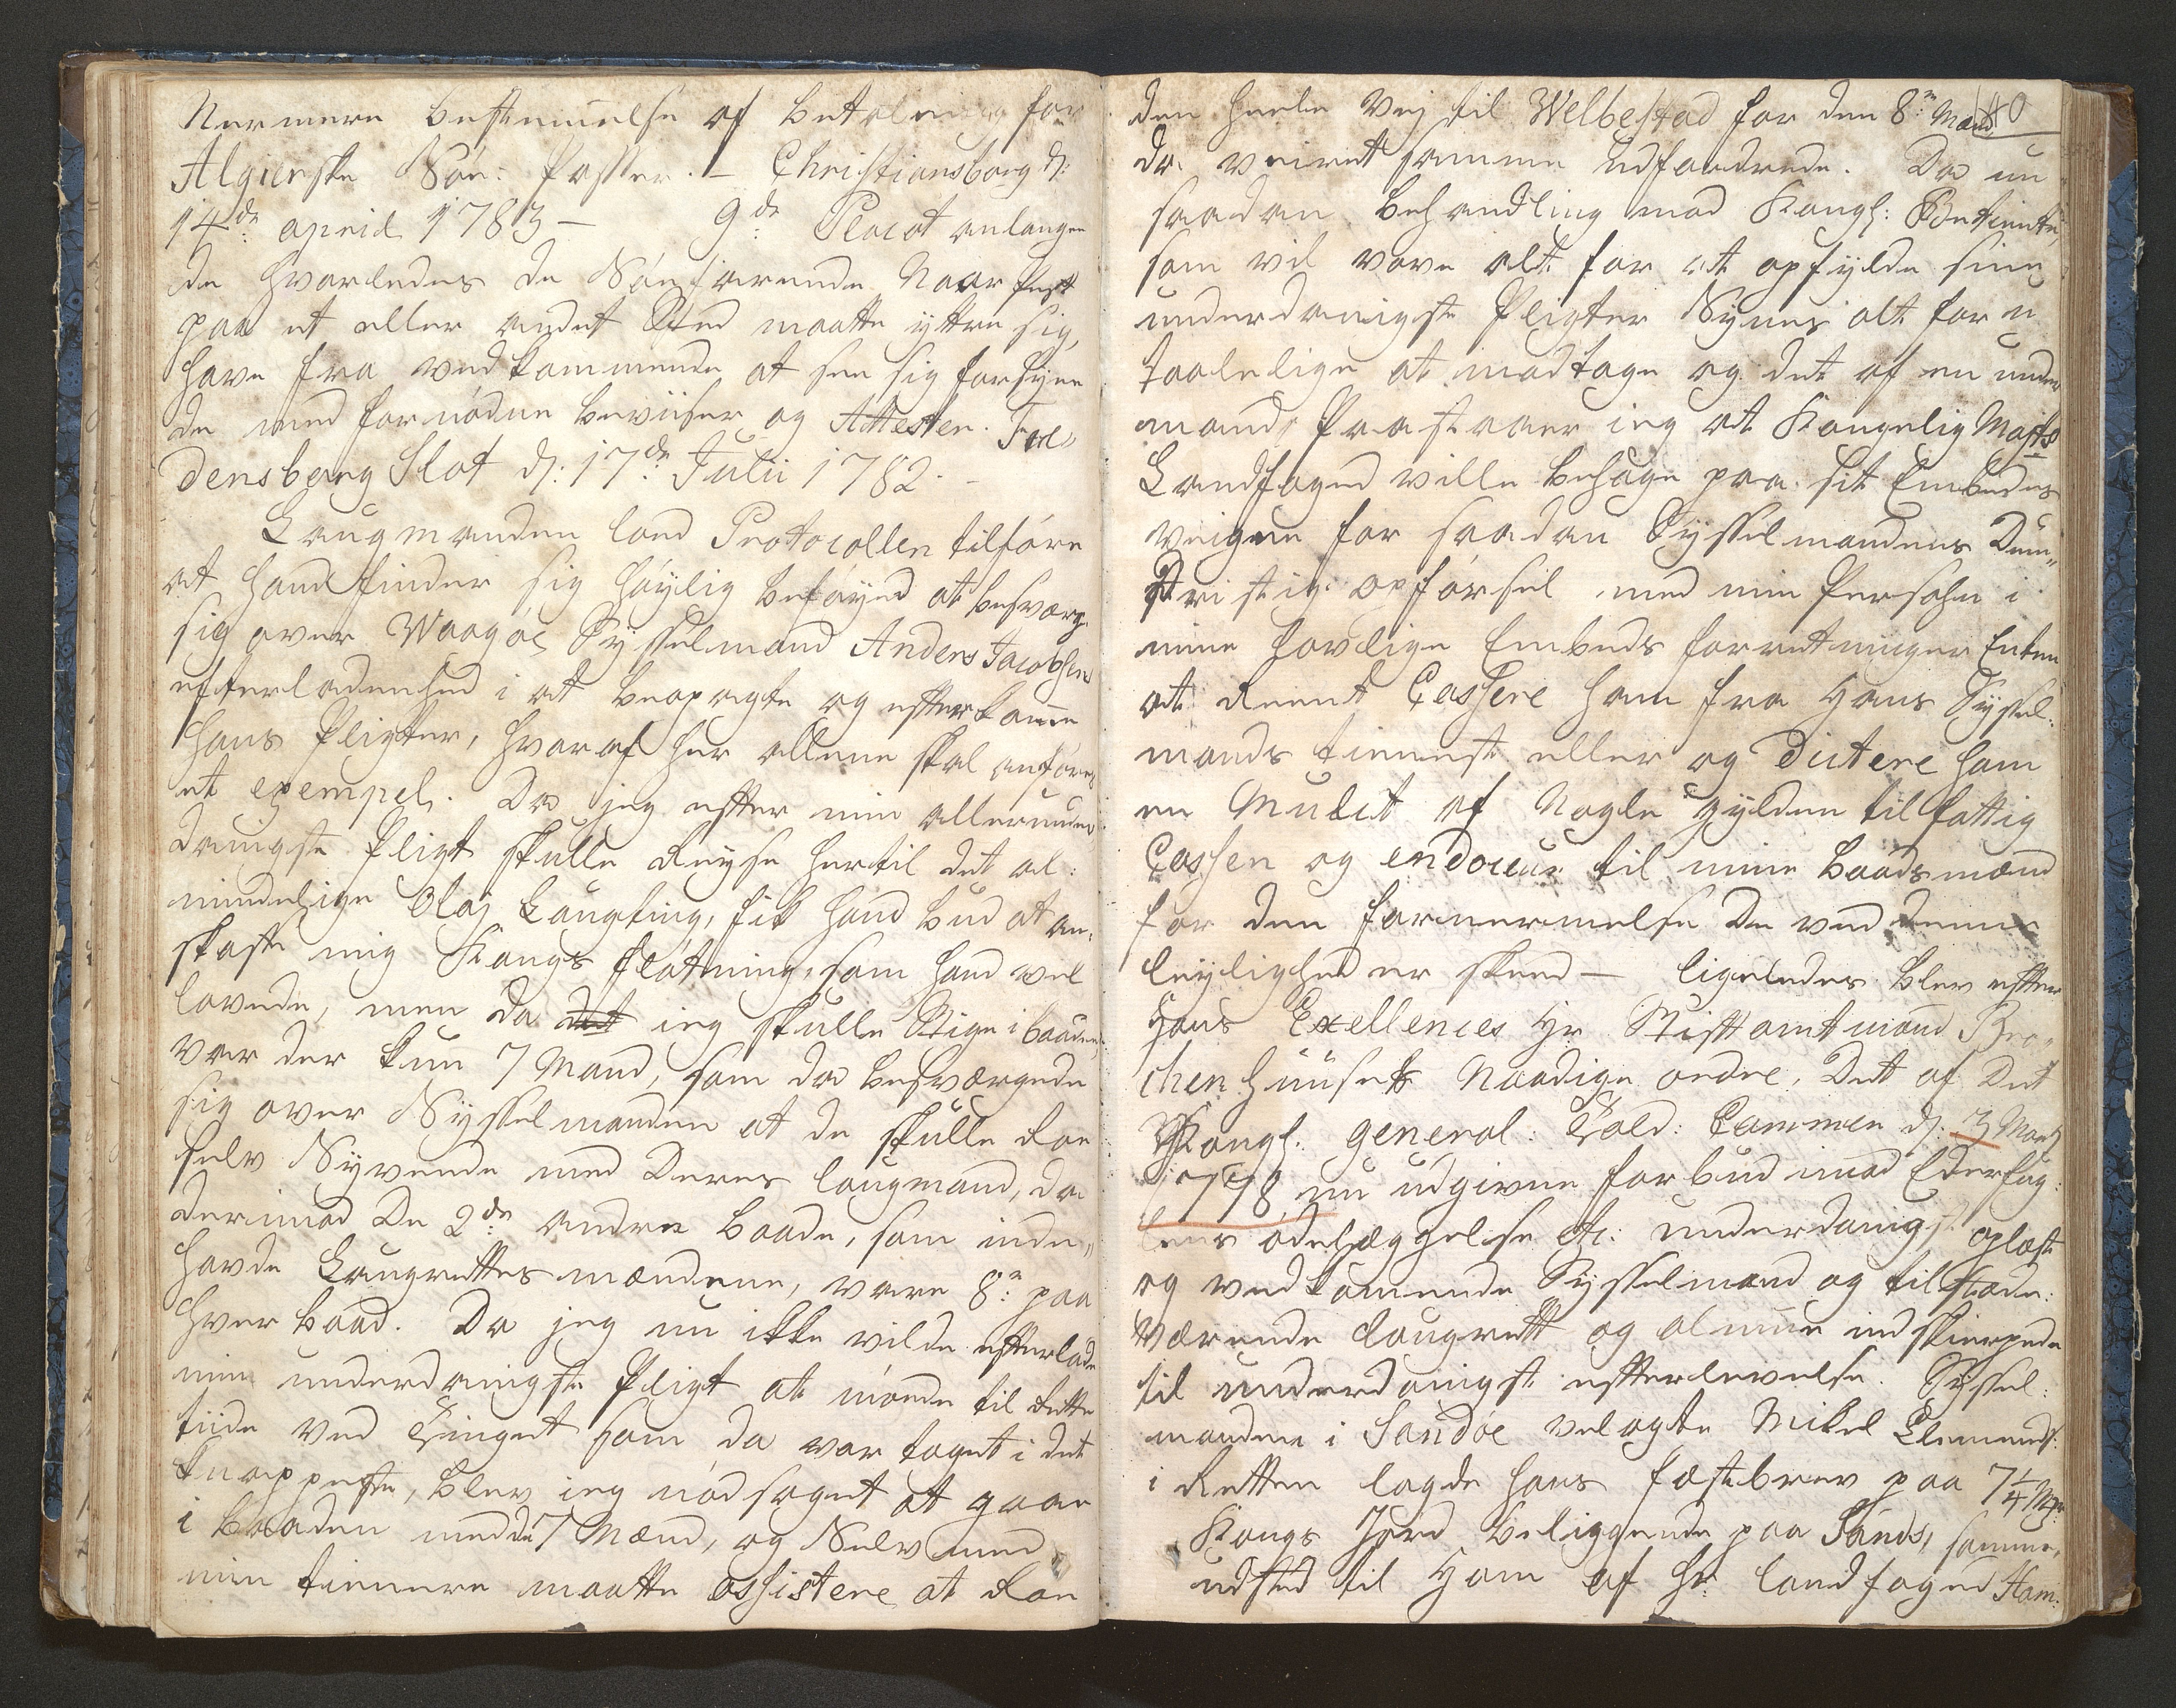 Nermere bestemelse af betalning for
Algierske Søe: Passer. – Christiansborg d:
14de april 1783 – 9de Placat anlangen
de hvorledes de Søefarende Naar Pest
paa et eller andet Sted maatte yttre sig,
have fra vedkommende at see sig forsÿne
de med fornødne beviiser og Attester. Fre„
densberg Slot d: 17de Julii 1782. –
Laugmanden lod Protocollen tilføre
at hand finder sig høÿlig beføÿed at besværge
sig over Waagøe Sÿsselmand Anders Jacobsens
efterladenhed i at beapagte og efterkome
hans Pligter, hvoraf her allene skal anføres
et exempel. Da jeg efter min allerunder
danigste Pligt skulle Reÿse hertil det al:
mindelige Olaj Laugting, fik hand bud at an:
skaffe mig Kongs skÿtning, som hand vel
lovede, men da det ieg skulle Stige i baaden,
var der kun 7 Mand, som da besværgede
sig over Sÿsselmanden at de skulle Roe
selv Sÿvende med Deres laugmand, da
derimod De 2de andre baade, som inde„
havde Laugrettesmændene, vare 8te paa
hver baad. Da jeg nu ikke vilde efterlade
min underdanigste Pligt at møede til rette
tiide ved Tinget som da var taget i det
knappeste, blev ieg nødsaget at gaae
i baaden med de 7 Mænd, og Selv med
min tiennere maatte assistere at Roe
den heele Vej til Welbestad for den 8de Mand 40
da veiret samme udfordrede. Da nu
saadan behandling mod Kongl: Betiente,
som vil vove alt for at opfÿlde sine
underdanigste Pligter Sÿnes alt for u
taalelige at modtage og det af en under
mand, Paastaaer ieg at Kongelig Majts
Landfoged ville behage paa sit Embedes
veigne for saadan Sÿsselmandens Dum„
dristig opførsel med min Persohn i
mine lovlige Embeds forretninger Enten
at Reent Cassere ham fra Hans Sÿssel:
mands tienest eller og Dictere ham
en Mulct af Nogle Gÿlden til fattig
Cassen og en Douceur til mine baadsmænd
for den fornermelse De ved denne
leÿlighed er skeed – ligeledes blev efter
Hans Exellences Hr Stiftamtmand Bra„
chenhuuses Naadige ordre, Det af Det
Kongl. general: Told: Cammer d: 3 Martz
1778 nu udgivne forbud imod Ederfug:
lens ødelæggelse etc: underdanigst oplæst
og vedkomende Sÿsselmænd og tilstæde:
værende laugrett og almue indskierpede
til underdanigst efterlevelse. Sÿssel:
manden i Sandøe velagte Mikel Clemends:
i Retten lagde hans fæstebrev paa 7¼ Mr:
Kongs Jord beliggende paa Sands, samme,
udsted til Ham af Hr: landfoged Ham: